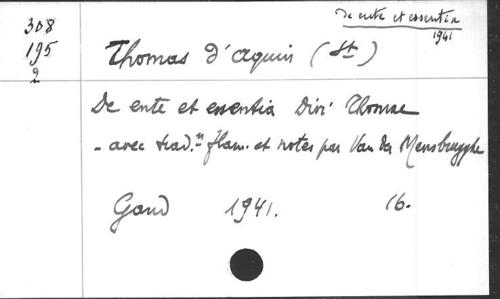 de ente et essentia
1941
308
195
2
Thomas d'Aquin (St)
De ente et essentia Divi Thomae
- avec trad.n flam. et notes par Van der Mensbrugghe
Gand 1941. 16.